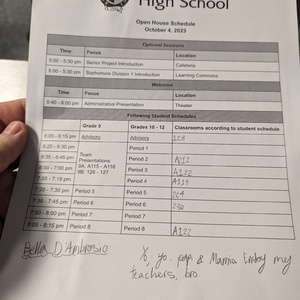 High School
Open House Schedule
October 4, 2023
Optional Sessions
Time Focus Location
5:00 - 5:30 pm Senior Project Introduction Cafeteria
5:00 - 5:30 pm Sophomore Division 1 Introduction Learning Commons
Welcome
Time Focus Location
5:40 - 6:00 pm Administrative Presentation Theater
Following Student Schedules
Time Grade 9 Grades 10 - 12 Classrooms according to student schedule
6:05 - 6:15 pm Advisory Advisory
6:20 - 6:30 pm Team Presentations 9A: A115 - A116 9B: 126 - 127 Period 1
6:35 - 6:45 pm Period 2
6:50 - 7:00 pm Period 3 A122
7:05 - 7:15 pm Period 4 A114
7:20 - 7:30 pm Period 5 204
7:35 - 7:45 pm Period 6 232
7:50 - 8:00 pm Period 7
8:05 - 8:15 pm Period 8 A122
Bella D'Ambrosio
yo. papa & Mamma Enjoy my
teachers, bro.